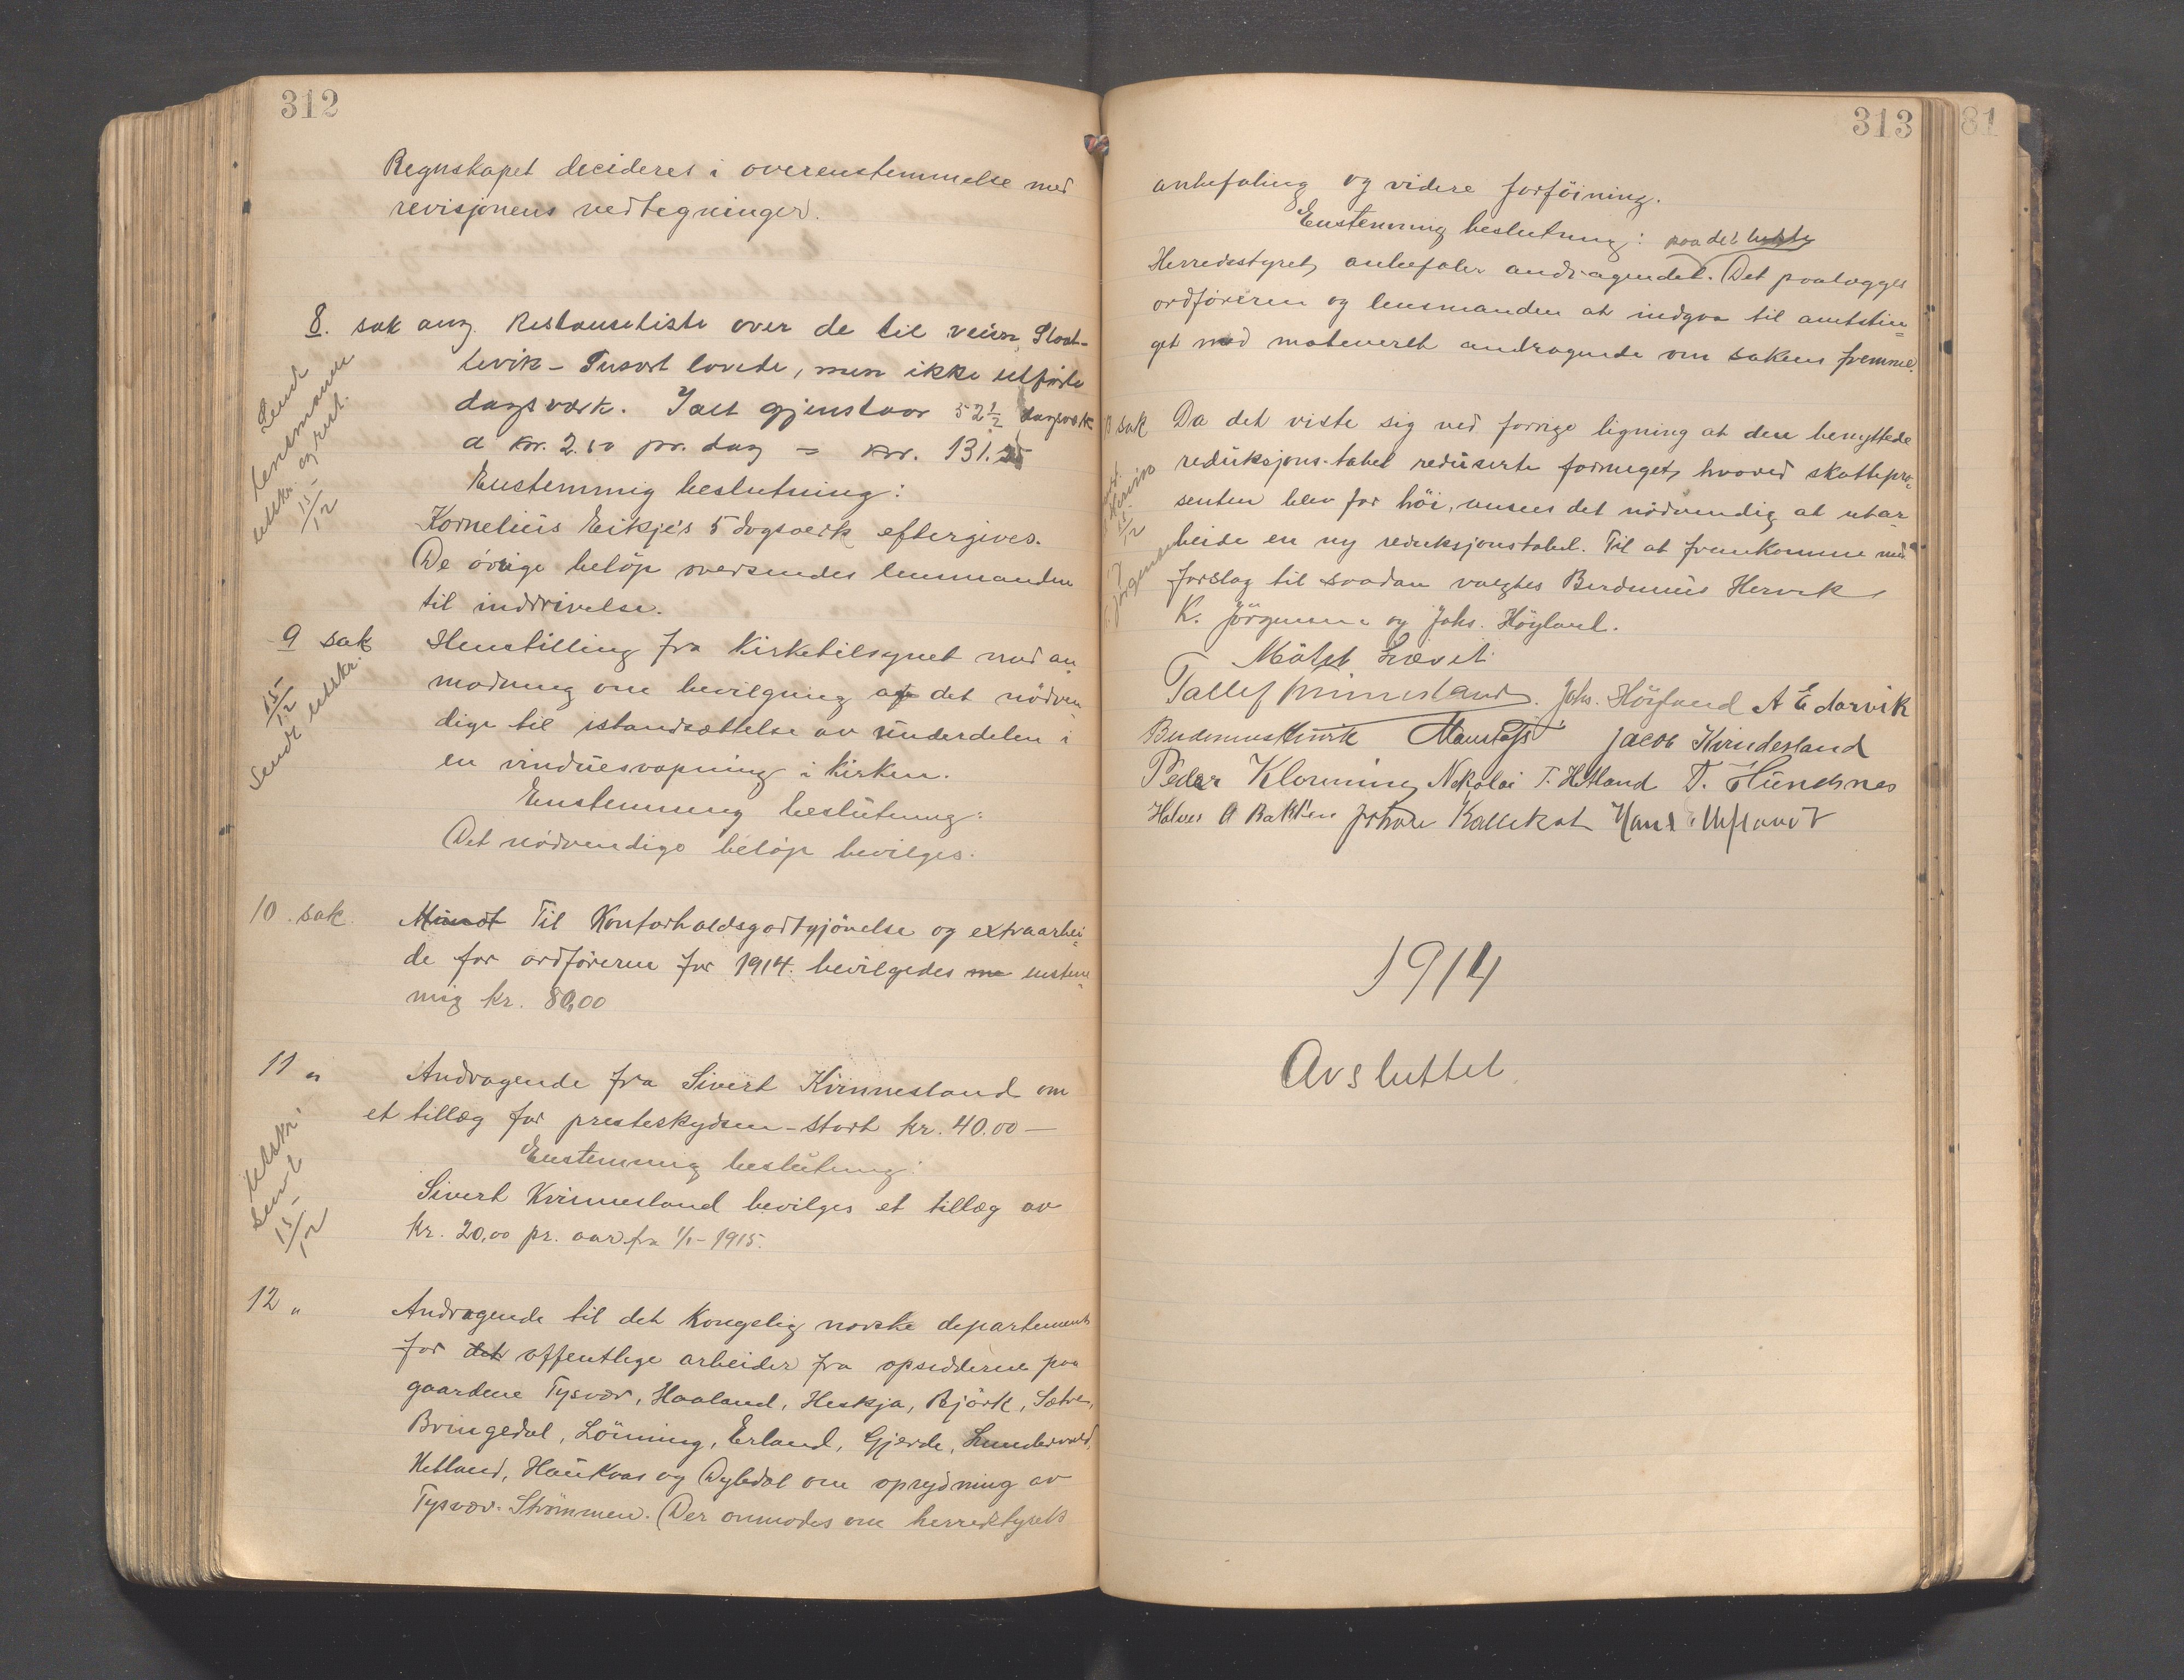 312
Regnskapet decideres i overenstemmelse med
revisjonens vedtegninger.
8. sak ang. Restanseliste over de til veien Slaat-
tevik - Susort lovede, men ikke utförte
dagsverk. Ialt gjenstaar 52 1/2 dagsverk
a kr. 2.50 pr. dag = kr. 131.25
Enstemmig beslutning:
Kornelius Eikje's 5 dagsverk eftergives.
De övrige belöp oversendes lensmanden
til inddrivelse.
Send
lensmannen
utskr. og rest.
15/12
9 sak Henstilling fra kirketilsynet med an
modning om bevilgning af det nödven
dige til istandsættelse av underdelen i
en vinduesvopning i kirken.
Enstemmig beslutning:
Det nödvendige belöp bevilges.
15/12
Sendt utskr.
10. sak Til Kontorholdsgodtgjörelse og extraarbei=
de for ordföreren for 1914. bevilgedes enstem=
mig kr. 80,00
11 " Andragende fra Sivert Kvinnesland om
et tillæg for presteskydsen - stort kr. 40.00 —
Enstemmig beslutning:
Sivert Kvinnesland bevilges et tillæg av
kr. 20,00 pr. aar fra 1/1 - 1915.
utskr.
Sendt
15/12
12 " Andragende til det Kongelig norske departement
for det offentlige arbeider fra opsidderne paa
gaardene Tysvær, Haaland, Heskja, Björk, Sætre,
Bringedal, Lönning, Erland, Gjerde,
Hetland, Haukaas og Dybdal om oprydning av
Tysvær-Strömmen. (Der anmodes om herredstyrets
313
81
anbefaling og videre forföining.
Enstemmig beslutning: paa det
Herredsstyret anbefaler andragendet. Det paalægges
ordföreren og lensmanden at indgaa til amtstin=
get med motiveret andragende om sakens fremme.
sak Da det viste sig ved forrige ligning at den benyttede
reduksjons-tabel reduserte formeget, hvorved skattepro=
senten blev for höi, ansees det nödvendig at utar
beide en ny reduksjonstabel. Til at fremkomme med
forslag til saadan valgtes Berdinius Hervik
K. Jörgensen og Johs. Höyland.
Mötet hævet
Tallef Kvinnesland. Johs. Höyland A E Aarvik
Jacob Kvindesland
Peder Klovning Nikolai T. Hetland T.
Halvor A Bakken Johan Hans
1914
Avsluttet